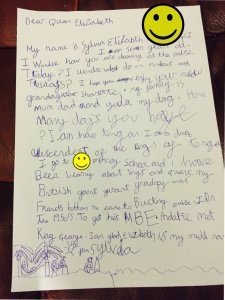 Dear Queen Elizabeth
My name is Sylvia Elizabeth
I am seven years old.
I wonder how you are doing at the palace
Today? I wonder what do on
Tusdays? I hope you enjoy your
grandaughter Sharlotte, my family is
mum dad and yoda my dog. How
Many dogs you have
? I am haf tongan I am a direct
descendent of the kings of tonga
I go to primey school and I have
Been learning about kings and queens my
British great great grandpy was
Francis bottom he came to Bucking palace in
the 1930s. To get his MBE. And he met
King george. I am glad Elizabeth is my middle name
from Sylvia